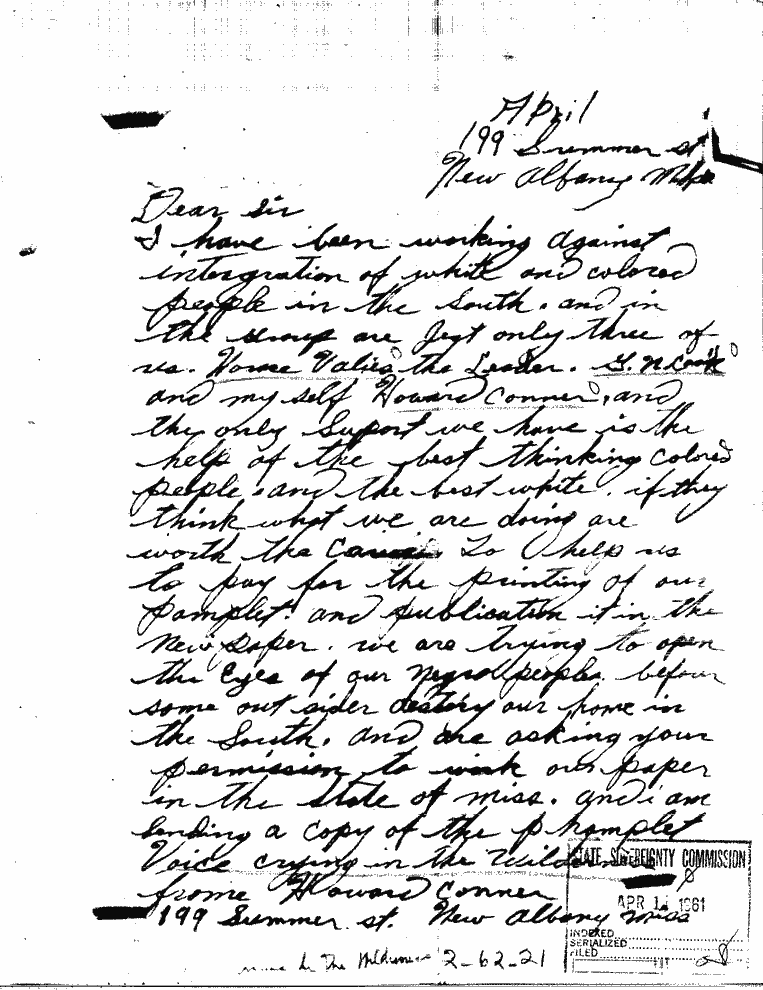 April
199 Summer st
New Albany Miss
Dear Sir
I have been working against
intergration of white and colored
people in the South. and in
the group are Just only three of
us. the Leader. G. N Cook
and my self Howard Conner, and
the only Suport we have is the
help of the best thinking Colored
people. and the best white. if they
think what we are doing are
worth the to help us
to pay for the printing of our
pamplet. and publication it in the
New paper. we are trying to open
the Eyes of our Negro people. befour
some out sider destiny our home in
the South. and are asking your
permission to work our paper
in the State of miss. and i am
Sending a copy of the phamplet
Voice crying in the
frome Howard Conner
199 Summer st. New Albany Miss
STATE SOVEREIGNTY COMMISSION
APR 1961
INDEXED
SERIALIZED
FILED
in The 2-62-21